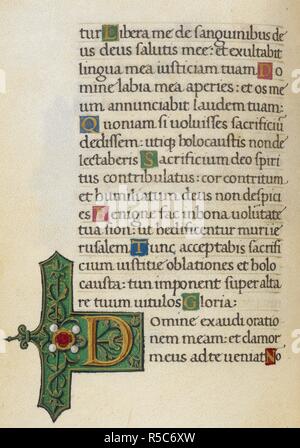 tur Libera me de sanguinibus de
us deus salutis mee: et exultabit
lingua mea iusticiam tuam. Do
mine labia mea aperies: et os me
um annunciabit laudem tuam:
Quoniam si voluisses sacrificiū
dedissem: utiqȝ holocaustis non de
lectaberis Sacrificium deo spiri
tus contribulatus: cor contritum
et humiliatum deus non despici
es Benigne fac in bona volūtate
tua sion: ut hedificentur muri ie
rusalem. Tunc acceptabis sacrifi
cium iustitie oblationes et holo
causta: tun imponent super alta
re tuum vitulos Gloria:
Domine exaudi oratio
nem meam: et clamor
meus ad te veniat No
alamy
R5C6XW
www.alamy.com